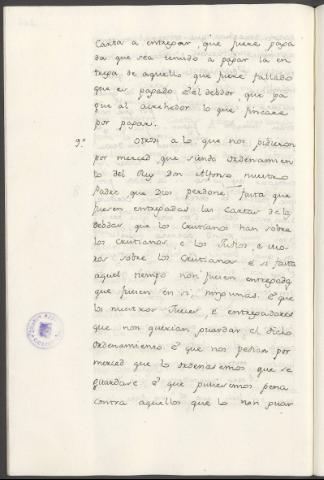 Carta a entregar, que fuere paga
da que sea tenudo a pagar la en
trega, de aquello que fuere fallado
que es pagado. E el debdor, que pa
gue al acrehedor lo que fincare
por pagar.
9.º Otrosi a lo que nos pidieron
por merced, que siendo ordenamien
to del Rey Don Alfonso nuestro
Padre, que Dios perdone, fasta que
fuesen entregadas las Cartas de la
debdas que los Cristianos han sobre
los Cristianos, e los Judios, e Mo-
ros sobre los Cristianos E si fasta
aquel tiempo non fuesen entregadas
que fuesen en si ningunas. E que
los nuestros Jueces, e entregadores
que non querian guardar el dicho
ordenamiento. E que nos pedian por
merced que lo ordenasemos que se
guardase E que pusiesemos pena
contra aquellos que lo non guar